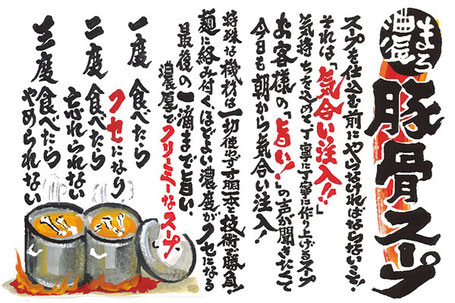 まろ濃
豚骨スープ
スープを仕込む前にやらなければならない事!
それは「気合い注入!!」
気持ちを込めて丁寧に丁寧に作り上げるスープ
お客様の「旨い!」の声が聞きたくて
今日も朝から気合い注入!
特殊な機材は一切使わず寸胴一本と技術で勝負!
麺に絡み付くほどよい濃度がクセになる
最後の一滴まで旨い
濃厚でクリーミーなスープ
一度 食べたら
クセになり
二度 食べたら
忘れられない
三度 食べたら
やめられない